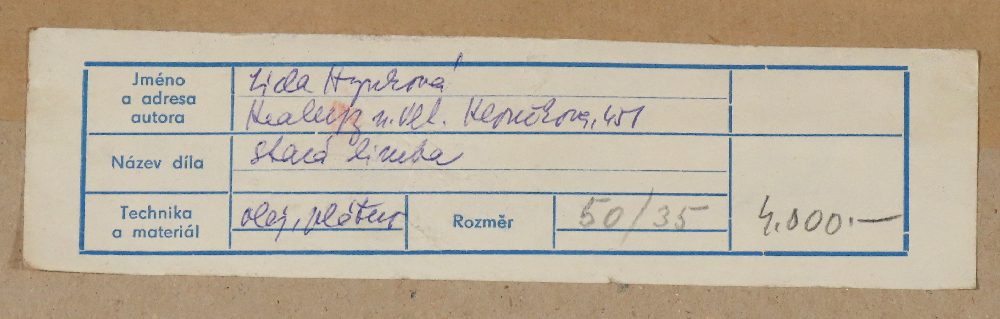 Jméno
a adresa
autora
Lída Hynková
Kralupy n. Vlt. 451
Název díla
Stará limba
Technika
a materiál
olej, plátno
Rozměr
50/35
4.000.—